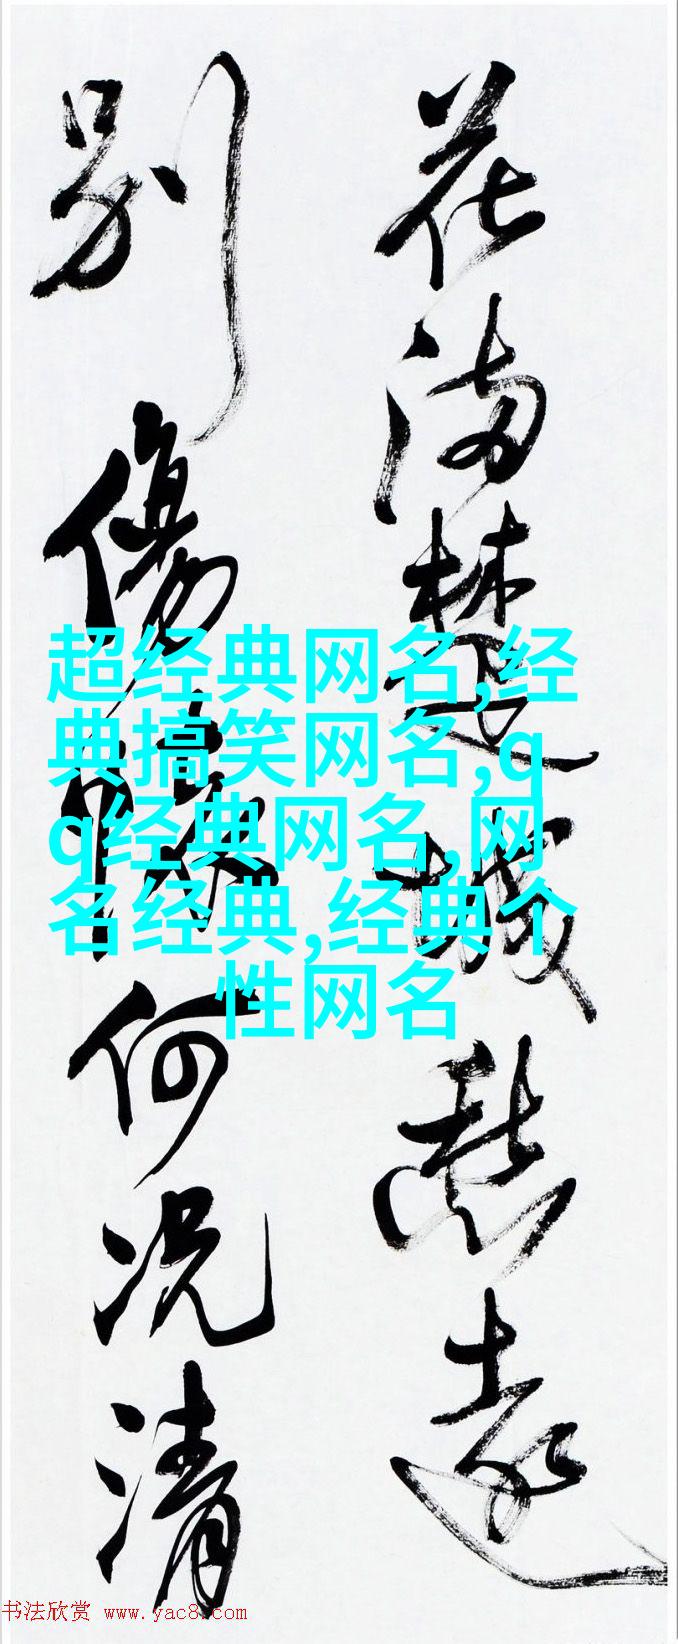 花满楚城愁遠
别傷懷何况清
超经典网名,经
典搞笑网名,q
q经典网名,网
名经典,经典个
性网名
书法欣赏 www.yac8.com